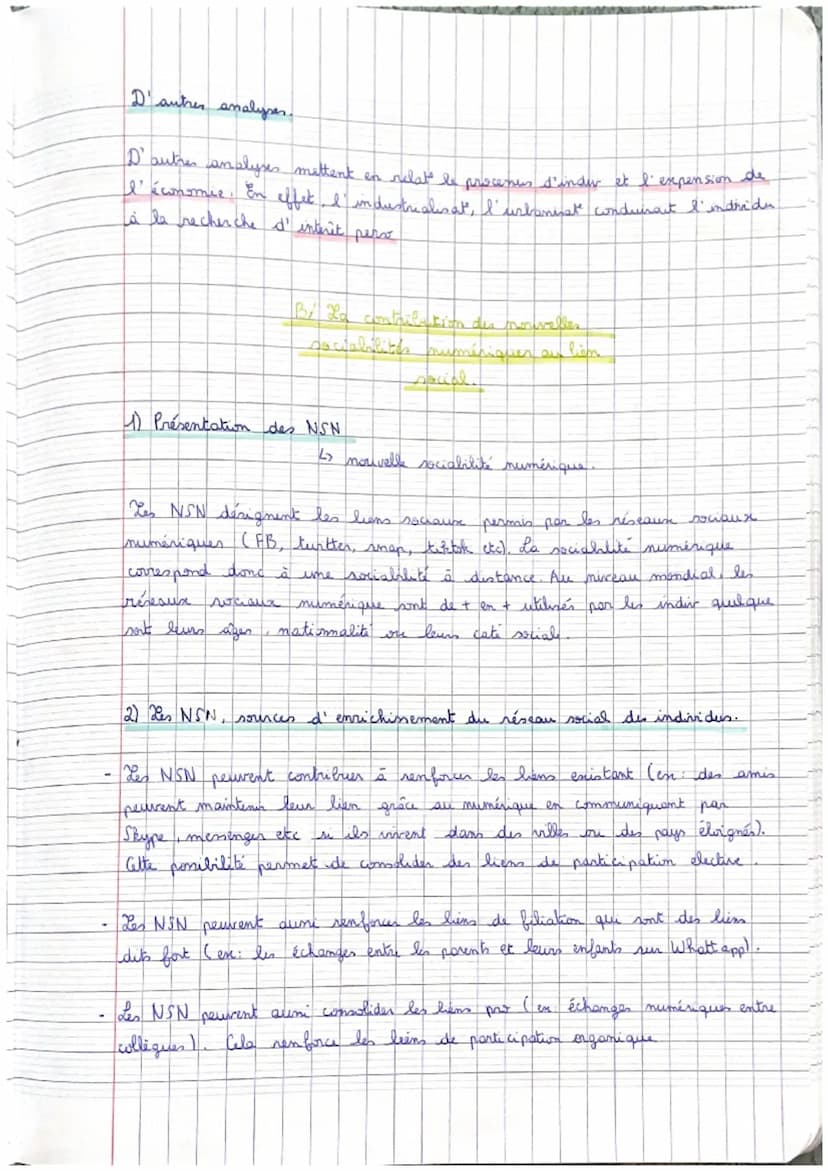 D'autres analyses.
D'autres analyses mettent en relat° le processus d'indiv et l'expension de
l'économie. En effet, l'industrialisat°, l'urbanisat° conduirait l'individu
à la recherche d'intérêt perso
B/ La contribution des nouvelles
sociabilités numériques au lien
social.
1) Présentation des NSN
↳ nouvelle sociabilité numérique.
Les NSN désignent les liens sociaux permis par les réseaux sociaux
numériques (FB, twitter, snap, tiktok etc). La sociabilité numérique
correspond donc à une sociabilité à distance. Au niveau mondial, les
réseaux sociaux numérique sont de + en + utilisés par les indiv quelque
soit leurs âges, nationnalité ou leurs caté sociale.
2) Les NSN, sources d'enrichissement du réseau social des individus.
- Les NSN peuvent contribuer à renforcer les liens existant (ex: des amis
peuvent maintenir leur lien grâce au numérique en communiquant par
Skype, messenger etc si ils vivent dans des villes ou des pays éloignés).
Cette possibilité permet de consolider des liens de participation élective.
- Les NSN peuvent aussi renforcer les liens de filiation qui sont des liens
dits fort (ex: les échanges entre les parents et leurs enfants sur Whattapp).
- Les NSN peuvent aussi consolider les liens pro (ex échanges numériques entre
collègues). Cela renforce les liens de participation organique